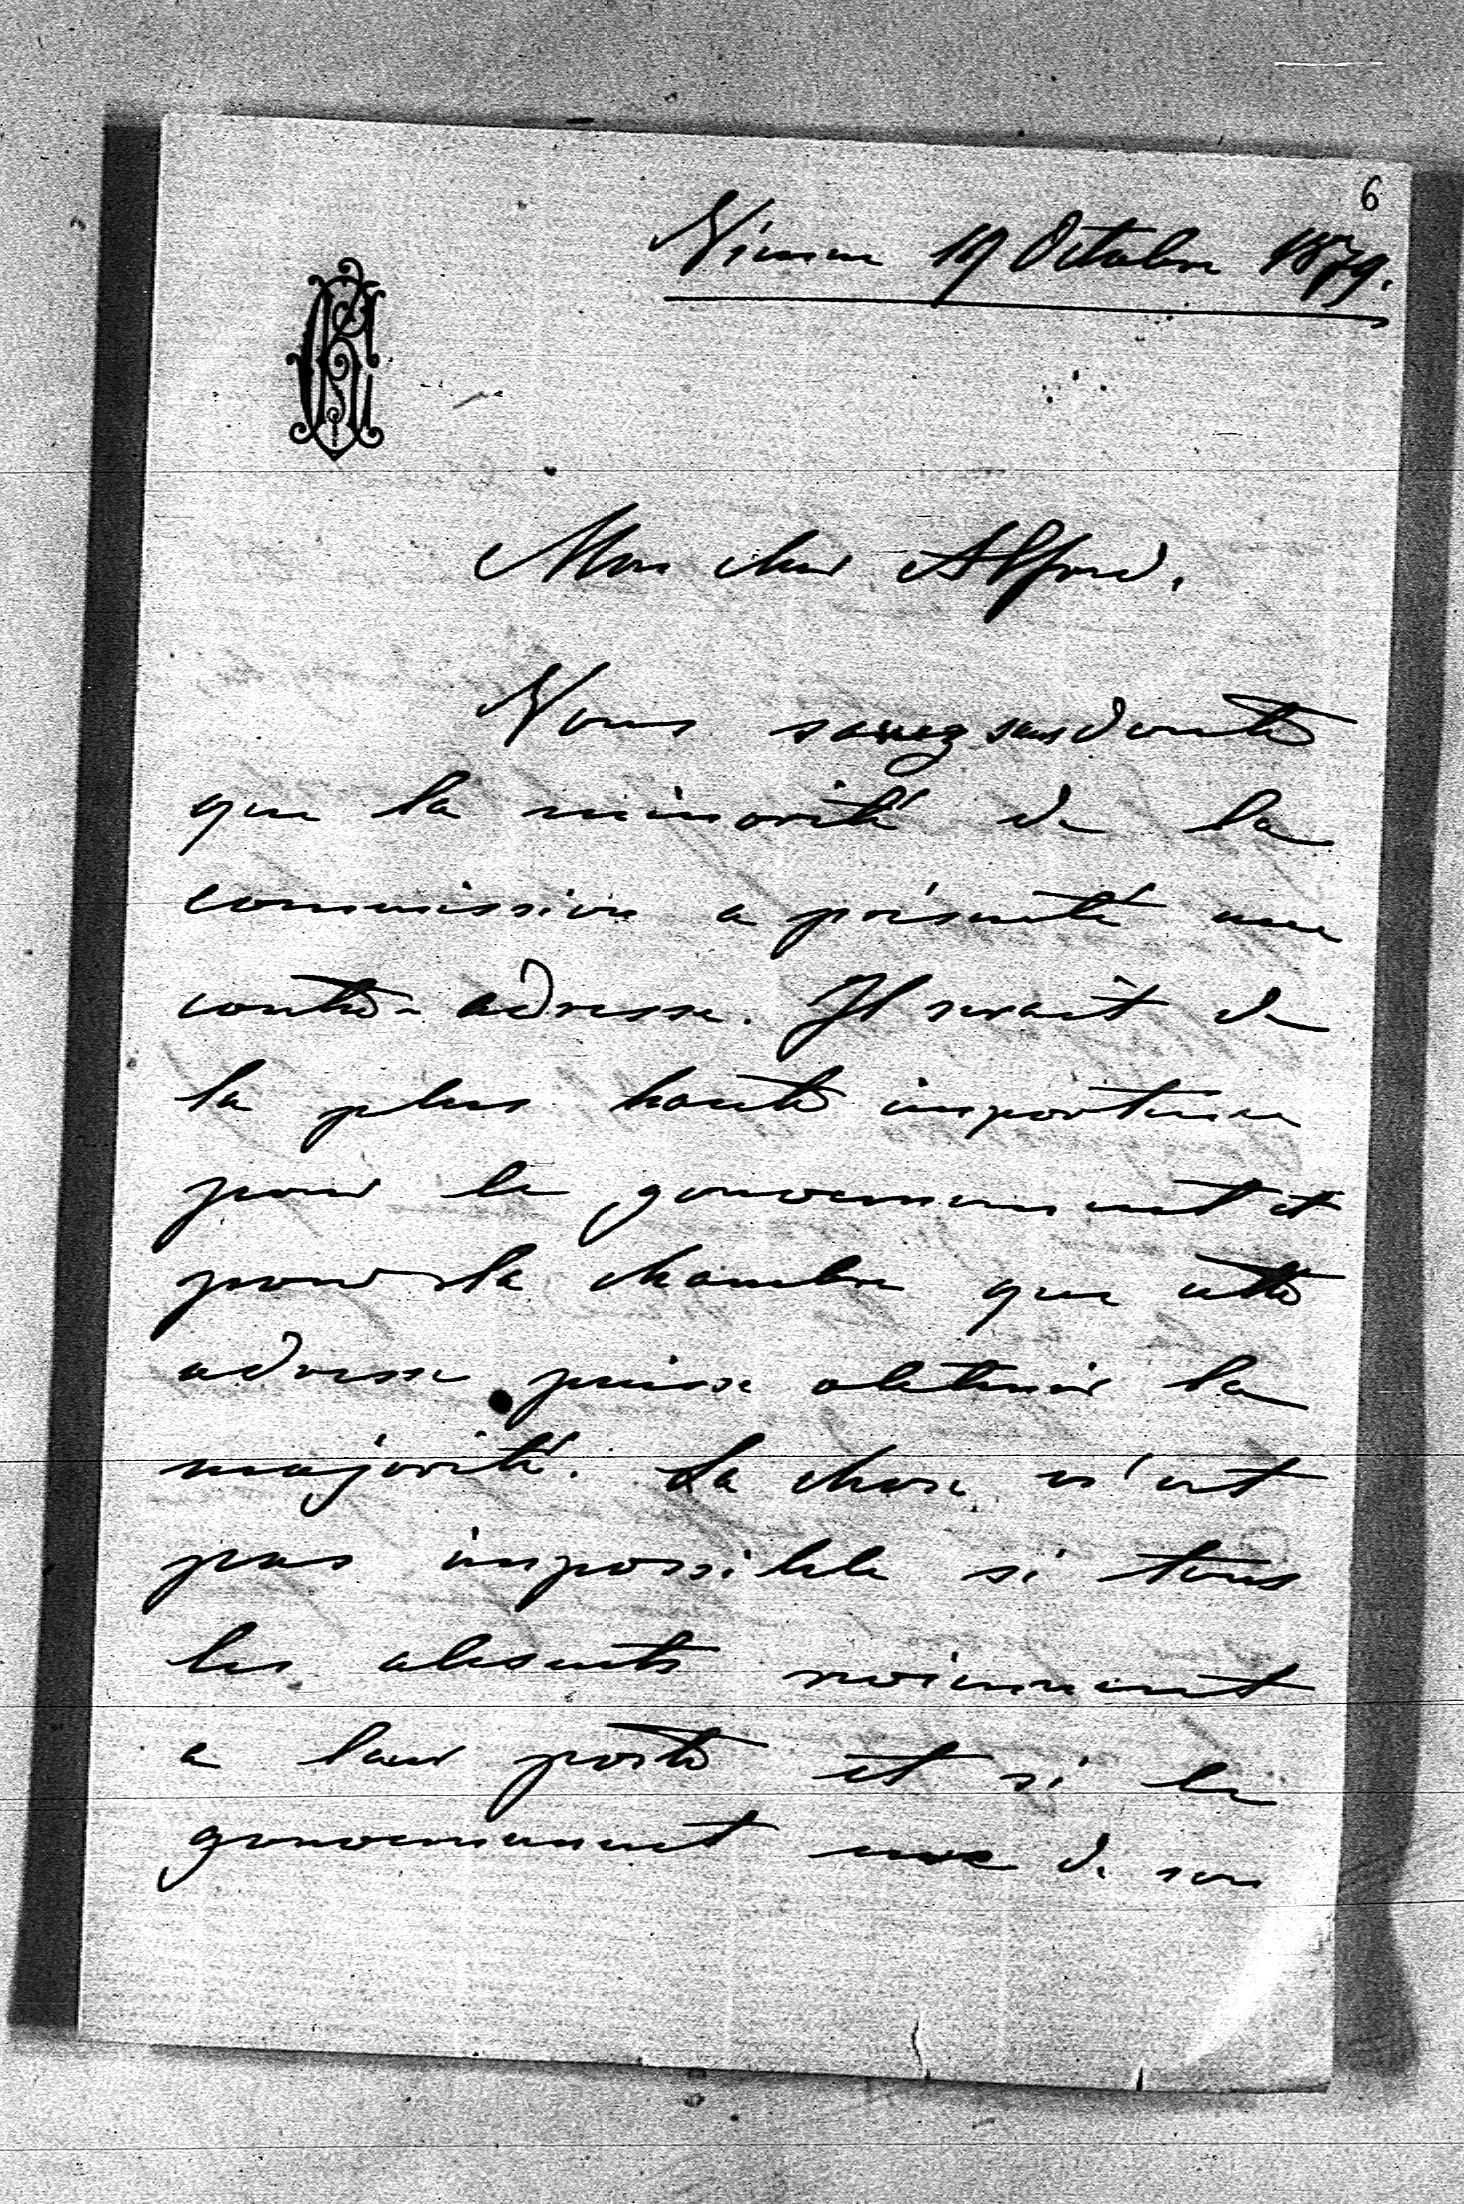 6
Vienne 19 Octobre 1879.
Mon cher Alfred.
Vous savez sans doute
que la minorité de la
commission a présenté une
contre-adresse. Il serait de
la plus haute importance
pour le gouvernement et
pour la chambre que cette
adresse puisse obtenir la
majorité. La chose n'est
pas impossible si tous
les absents reviennent
a leur poste et si le
gouvernement use de son